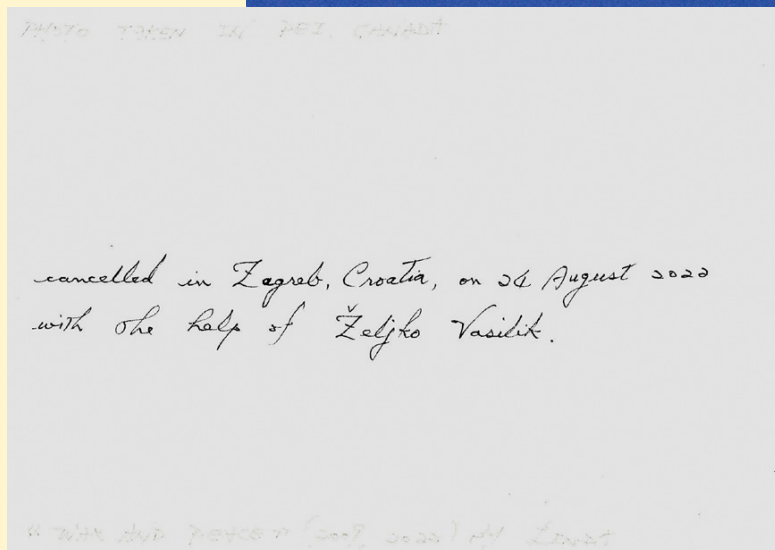 PHOTO TAKEN IN PEI, CANADA
cancelled in Zagreb, Croatia, on 24 August 2022
with the help of Željko Vasilik.
" WAR AND PEACE " (2009, 2022) by